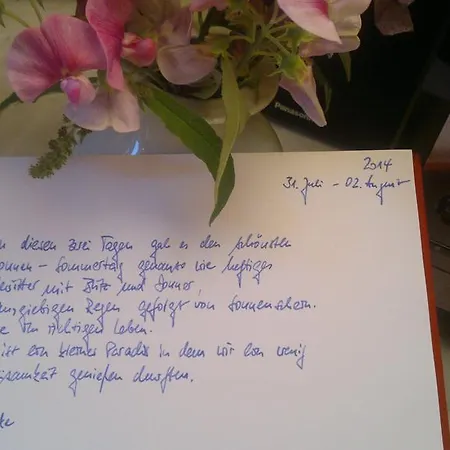 Panasonic
2014
31. Juli - 02. August
n diesen zwei Tagen gab es den schönsten
onnen - Sommertag genauso wie heftiges
ewitter mit Blitz und Donner,
ausgiebigen Regen gefolgt von Sonnenschein.
e im richtigen Leben.
ist ein kleines Paradis in dem wir ein wenig
samkeit genießen durften.
ke